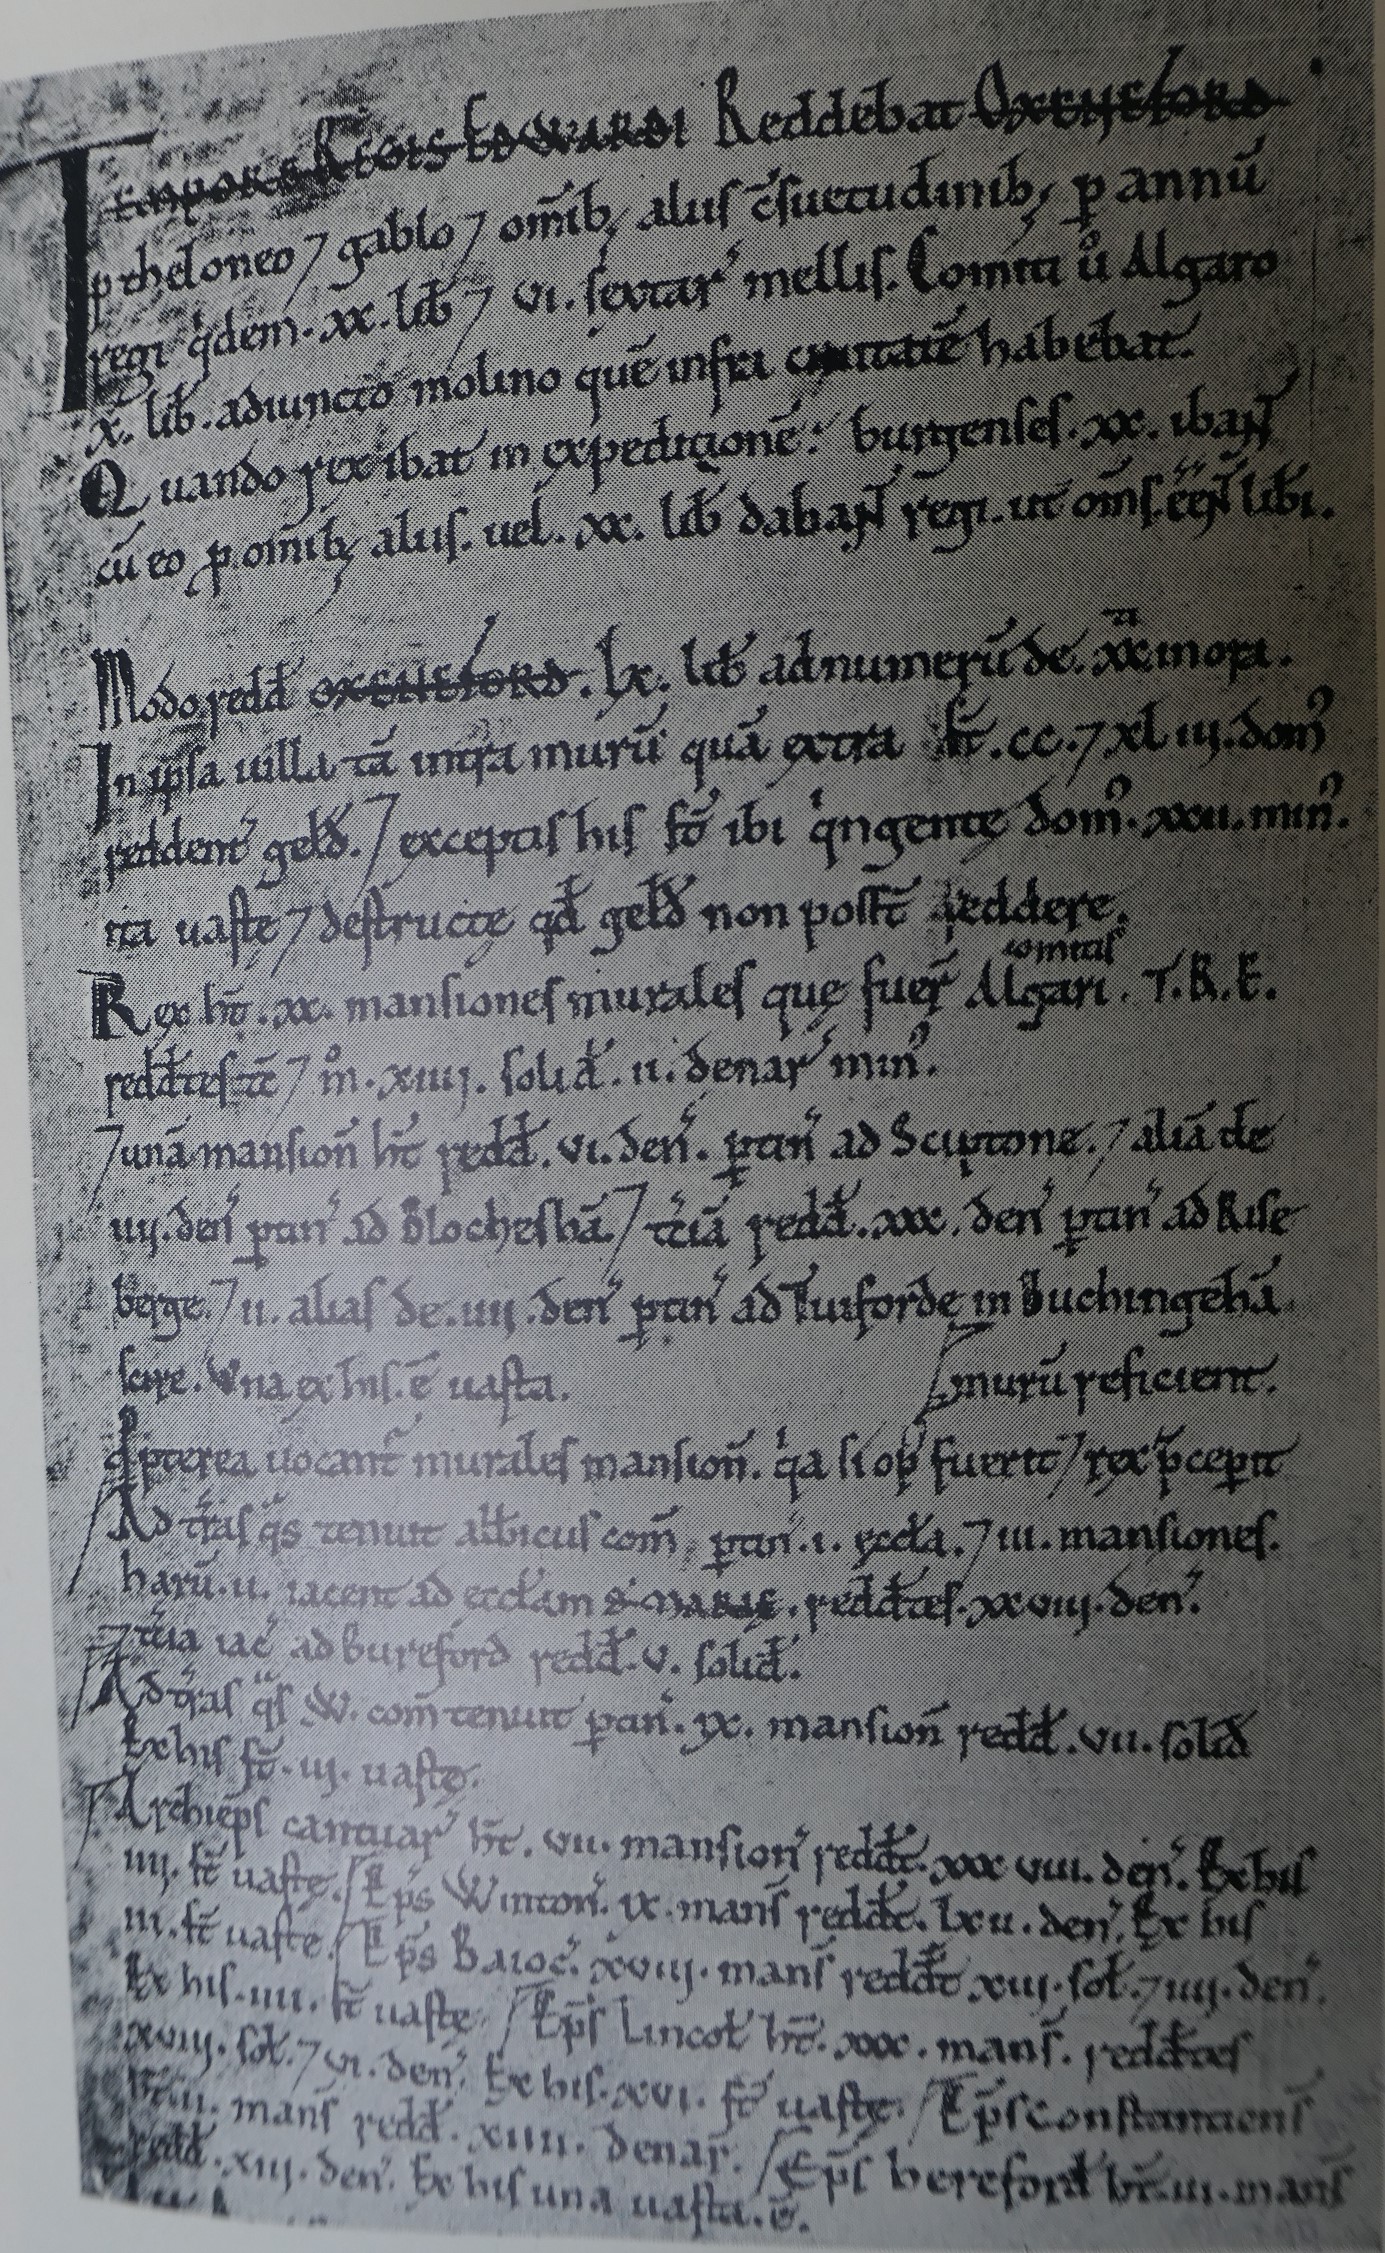 TEMPORE REGIS EDWARDI Reddebat OXENEFORD
p theloneo ⁊ gablo ⁊ om̄ib; aliis c̄suetudinib; p annū
regi qͥdem .xx. lib ⁊ vi. sextar̕ mellis. Comiti ů Algaro
x. lib. adiuncto molino quē infra ciuitatē habebat.
Quando rex ibat in expeditionē: burgenses .xx. ibant
cū eo p om̄ib; aliis. uel .xx. lib dabant regi. ut om̄s eēnt libi.
Modo redd̄ OXENEFORD .lx. lib ad numerū de .xx.ti in ora.
In ipsa uilla tā intra murū quā extra sꝉt .cc. ⁊ xl iij. dom̕
reddent̕ geld̄. ⁊ exceptis his sꝉt ibi qͥngente dom̕ .xxii. min̕.
ita uaste ⁊ destructe qd̄ geld̄ non poss̄t reddere.
Rex ht̄ .xx. mansiones murales que fuer̄ Algari comitis . T.R.E.
redd̄tes tc̄ ⁊ m̊ .xiiij. solid̄ .ii. denar̕ min̕.
⁊ unā mansion̄ ht̄ redd̄ .vi. den̕. ptin̕ ad Sciptone. ⁊ aliā de
iiij. den̕ ptin̕ ad Blocheshā. ⁊ tͨiā redd̄ .xxx. den̕ ptin̕ ad Rise
berge. ⁊ ii. alias de .iiii. den̕ ptin̕ ad Tuiforde in Buchingehā
scire. Vna ex his. ē uasta.
murū reficient.
Ppterea uocant̕ murales mansion̄. qͥa si op̕ fuerit ⁊ rex p̄cepit
Ad t̄ras qͣs tenuit alb̄icus com̄, ptin̄ .i. eccła. ⁊ iii. mansiones.
harū .ii. iacent ad eccłam S MARIE. redd̄tes .xxviii. den̕.
⁊ tͨia iac̄ ad bureford redd̄ .v. solid̄.
Ad t̄ras qͣs W. com̄ tenuit ptin̄ .ix. mansion̄ redd̄ .vii. solid̄
Ex his sꝉt .iij. uaste.
Archiep̄s cantuar̕ ht̄ .vii. mansion̕ redd̄t .xxx viii. den̕. Ex his
iiij. sꝉt uaste. Ep̄s Winton̕. ix. mans̄ redd̄t. lxii. den̕. Ex his
iii. sꝉt uaste. Ep̄s Baioc̕ .xviij. mans̄ redd̄t xiij. soł. ⁊ iiij. den̕.
Ex his .iiii. sꝉt uaste. Ep̄s Lincoł ht̄ .xxx. mans̄. redd̄tes
xviij. soł. ⁊ vi. den̕. Ex his .xvi. sꝉt uaste. Ep̄s constantiens̄
ht̄ .ii. mans̄ redd̄ .xiiii. denar̄. Ep̄s hereford̄ ht̄ .iii. mans̄
redd̄. xiij. den̕. Ex his una uasta. ē.